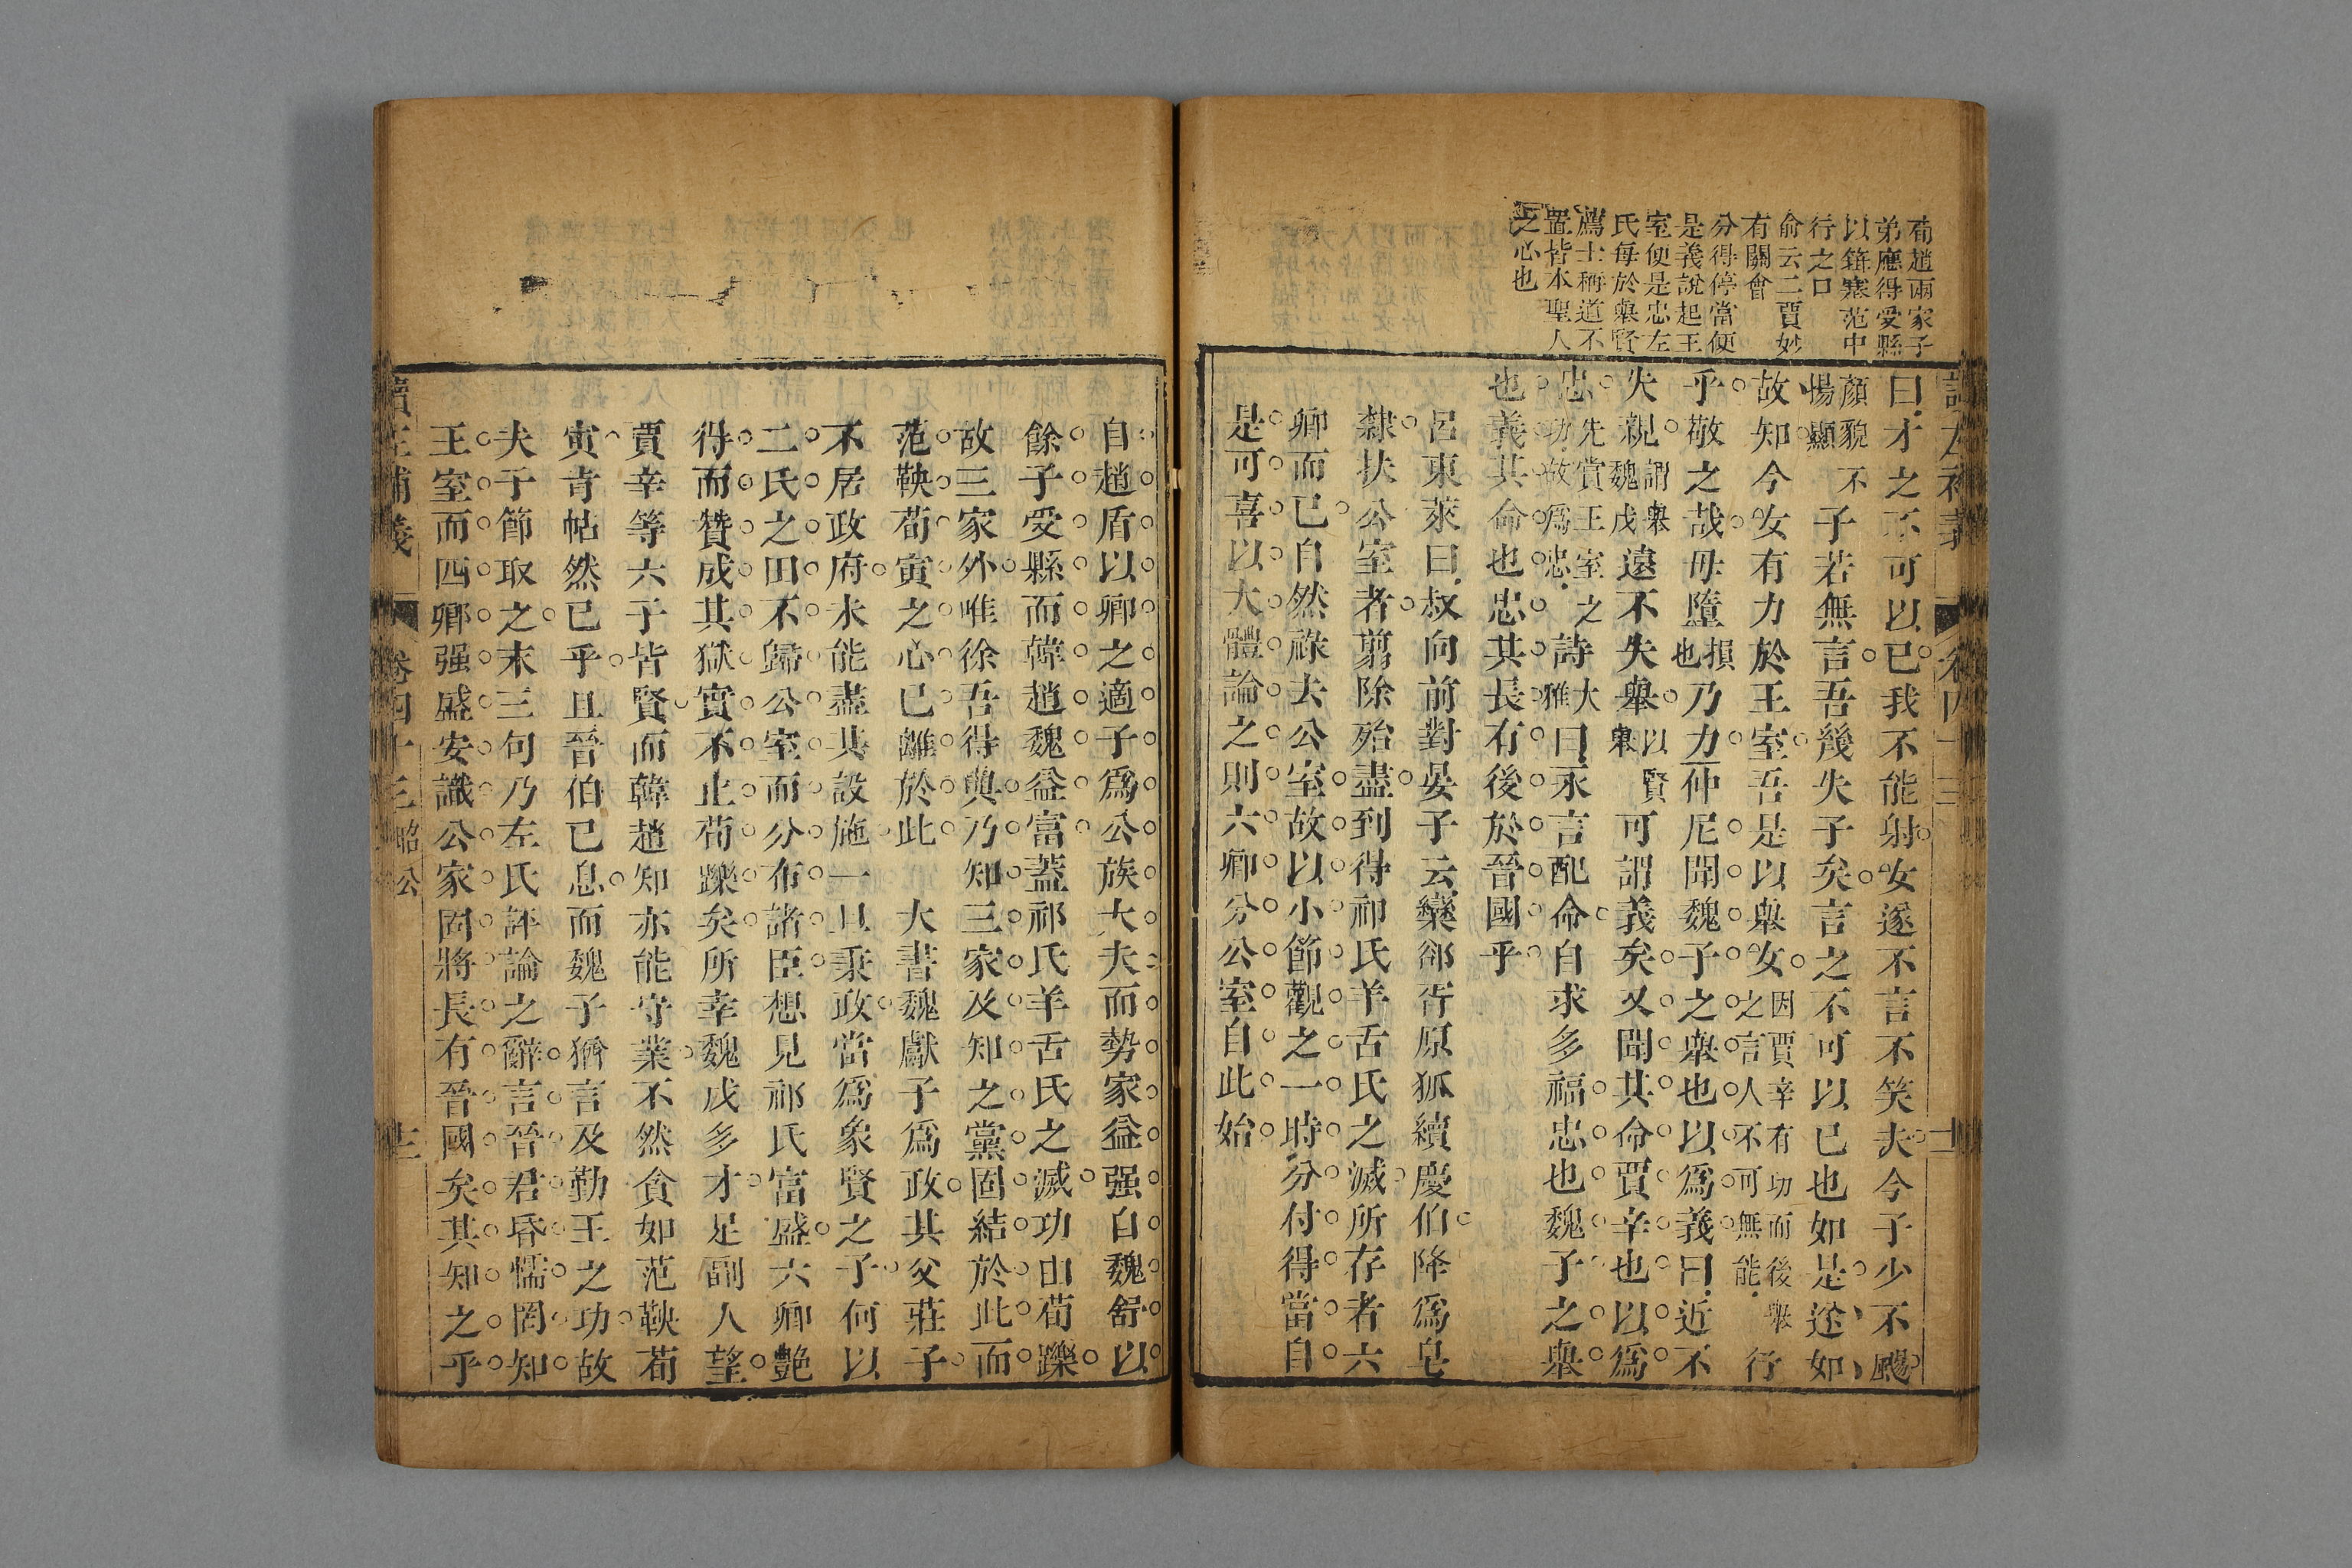 荀趙兩家子
弟應得受縣
以箝寒范中
行之口
俞云二賈妙
有關會
分得停當便
是義說起王
室便是忠左
氏每於舉賢
薦士稱道不
置皆本聖人
之心也
曰才之不可以已我不能射女遂不言不笑夫今子少不颺
顏貌不
揚顯
子若無言吾幾失子矣言之不可以已也如是遂如
故知今女有力於王室吾是以舉女
因賈辛有功而後舉
之言人不可無能
行
乎敬之哉毋墮
損
也
乃力仲尼聞魏子之舉也以爲義曰近不
失親
謂舉
魏戊
遠不失舉
以
賢
舉
可謂義矣又聞其命賈辛也以爲
忠
先賞王室之
功故爲忠
詩
大
雅
曰永言配命自求多福忠也魏子之舉
也義其命也忠其長有後於晉國乎
呂東萊曰叔向前對晏子云欒郤胥原狐續慶伯降爲皂
隸扶公室者剪除殆盡到得祁氏羊舌氏之滅所存者六
卿而已自然祿去公室故以小節觀之一時分付得當自
是可喜以大體論之則六卿分公室自此始
自趙盾以卿之適子爲公族大夫而勢家益强自魏舒以
餘子受縣而韓趙魏益富蓋祁氏羊舌氏之滅功由荀躒
故三家外唯徐吾得與乃知三家及知之黨固結於此而
范鞅荀寅之心已離於此 大書魏獻子爲政其父莊子
不居政府未能盡其設施一旦秉政當爲象賢之子何以
二氏之田不歸公室而分布諸臣想見祁氏富盛六卿艷
得而贊成其獄實不止荀躒矣所幸魏戊多才足副人望
賈辛等六子皆賢而韓趙知亦能守業不然貪如范鞅荀
寅肯帖然已乎且晉伯已息而魏子猶言及勤王之功故
夫子節取之末三句乃左氏評論之辭言晉君昏懦罔知
王室而四卿强盛安識公家固將長有晉國矣其知之乎
讀左補義 卷四十三昭公 十二